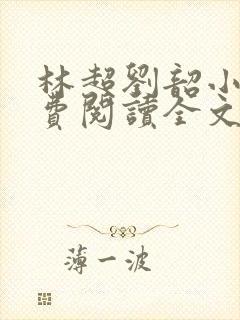 林超劉韶小
費閱讀全文
薄一波